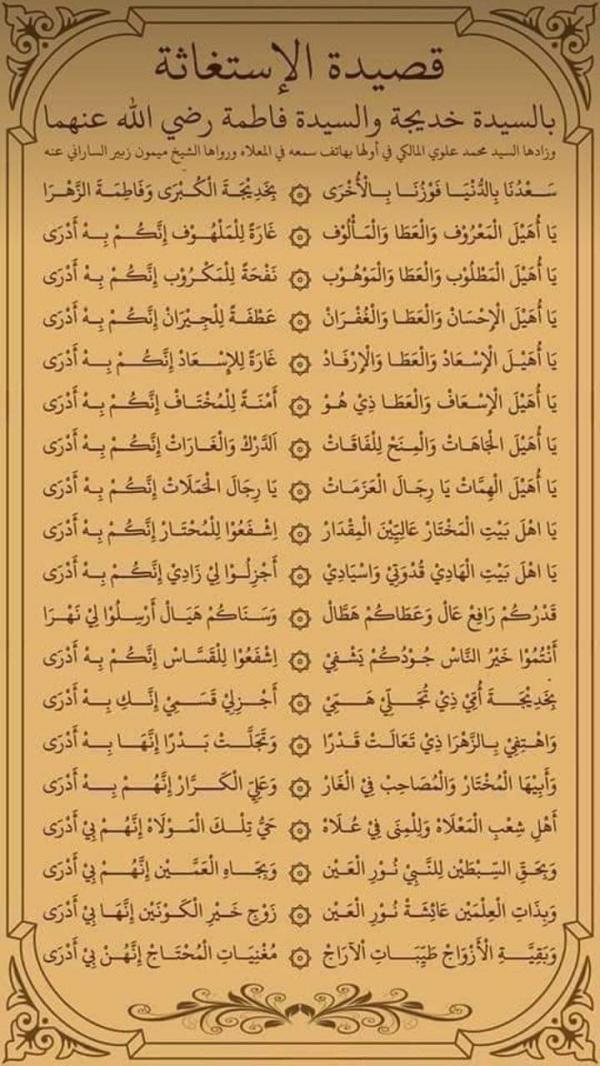 قصيدة الإستغاثة
بالسيدة خديجة والسيدة فاطمة رضي الله عنهما
وزادها السيد محمد علوي المالكي في أولها بهاتف سمعه في المعلاه ورواها الشيخ ميمون زبير الساراني عنه
سَعْدُنَا بِالدُّنْيَا فَوْزُنَا بِالْأُخْرَى ۞ بِخَدِيْجَةَ الْكُبْرَى وَفَاطِمَةَ الزَّهْرَا
يَا أُهَيْلَ الْمَعْرُوْفِ وَالْعَطَا وَالْمَأْلُوْفِ ۞ غَارَةً لِلْمَلْهُوْفِ إِنَّكُمْ بِهْ أَدْرَى
يَا أُهَيْلَ الْمَطْلُوْبِ وَالْعَطَا وَالْمَوْهُوْبِ ۞ نَفْحَةً لِلْمَكْرُوْبِ إِنَّكُمْ بِهْ أَدْرَى
يَا أُهَيْلَ الْإِحْسَانْ وَالْعَطَا وَالْغُفْرَانْ ۞ عَطْفَةً لِلْجِيْرَانْ إِنَّكُمْ بِهْ أَدْرَى
يَا أُهَيْلَ الْإِسْعَادْ وَالْعَطَا وَالْإِرْفَادْ ۞ غَارَةً لِلإِسْعَادْ إِنَّكُمْ بِهْ أَدْرَى
يَا أُهَيْلَ الْإِسْعَافْ وَالْعَطَا ذِيْ هُوْ ۞ أَمْنَةً لِلْمُخْتَافْ إِنَّكُمْ بِهْ أَدْرَى
يَا أُهَيْلَ الْجَاهَاتْ وَالْمِنَحْ لِلْفَاقَاتْ ۞ اَلدَّرَكْ وَالْغَارَاتْ إِنَّكُمْ بِهْ أَدْرَى
يَا أُهَيْلَ الْهِمَّاتْ يَا رِجَالَ الْعَزَمَاتْ ۞ يَا رِجَالَ الْحَمَلَاتْ إِنَّكُمْ بِهْ أَدْرَى
يَا اهْلَ بَيْتِ الْمُخْتَارْ عَالِيِّيْنَ الْمِقْدَارْ ۞ اِشْفَعُوْا لِلْمُحْتَارْ إِنَّكُمْ بِهْ أَدْرَى
يَا اهْلَ بَيْتِ الْهَادِيْ قُدْوَتِيْ وَاسْيَادِيْ ۞ أَجْزِلُوْا لِيْ زَادِيْ إِنَّكُمْ بِهْ أَدْرَى
قَدْرُكُمْ رَافِعْ عَالْ وَعَطَاكُمْ هَطَّالْ ۞ وَسَنَاكُمْ هَيَالْ أَرْسِلُوْا لِيْ نَهْرَا
أَنْتُمُوْا خَيْرُ النَّاسْ جُوْدُكُمْ يَشْفِيْ ۞ اِشْفَعُوْا لِلْقَسَّاسْ إِنَّكُمْ بِهْ أَدْرَى
بِخَدِيْجَةَ أُمِّيْ ذِيْ تُجَلِّيْ هَمِّيْ ۞ أَجْزِلِيْ قَسَمِيْ إِنَّكِ بِهْ أَدْرَى
وَاهْتِفِيْ بِالزَّهْرَا ذِيْ تَعَالَتْ قَدْرًا ۞ وَتَجَلَّتْ بَدْرًا إِنَّهَا بِهْ أَدْرَى
وَأَبِيْهَا الْمُخْتَارْ وَالْمُصَاحِبْ فِيْ الْغَارْ ۞ وَعَلِيِّ الْكَرَّارْ إِنَّهُمْ بِهْ أَدْرَى
أَهْلِ شِعْبِ الْمَعْلَاهْ وَلِلْمِنَى فِيْ عُلَاهْ ۞ حَيُّ تِلْكَ الْمَوْلَاهْ إِنَّهُمْ بِيْ أَدْرَى
وَبِحَقِ السِّبْطَيْنِ لِلنَّبِيْ نُوْرِ الْعَيْنِ ۞ وَبِجَاهِ الْعَمَّيْنِ إِنَّهُمْ بِيْ أَدْرَى
وَبِذَاتِ الْعِلْمَيْنِ عَائِشَةْ نُوْرِ الْعَيْنِ ۞ زَوْجِ خَيْرِ الْكَوْنَيْنِ إِنَّهَا بِيْ أَدْرَى
وَبَقِيَّةِ الْأَزْوَاجْ طَيِّبَاتِ الْآرَاجْ ۞ مُغْنِيَاتِ الْمُحْتَاجْ إِنَّهُنْ بِيْ أَدْرَى